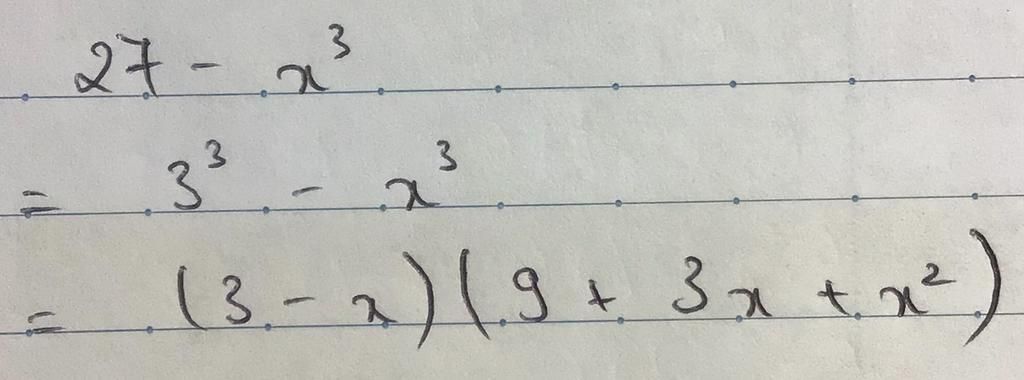 27 - x³
= 3³ - x³
= (3 - x)(9 + 3x + x²)